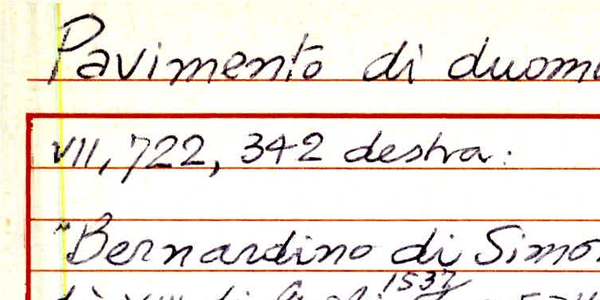 Pavimento di duomo
VII, 722, 342 destra:
"Bernardino di Simo
1537
dì XVIII di